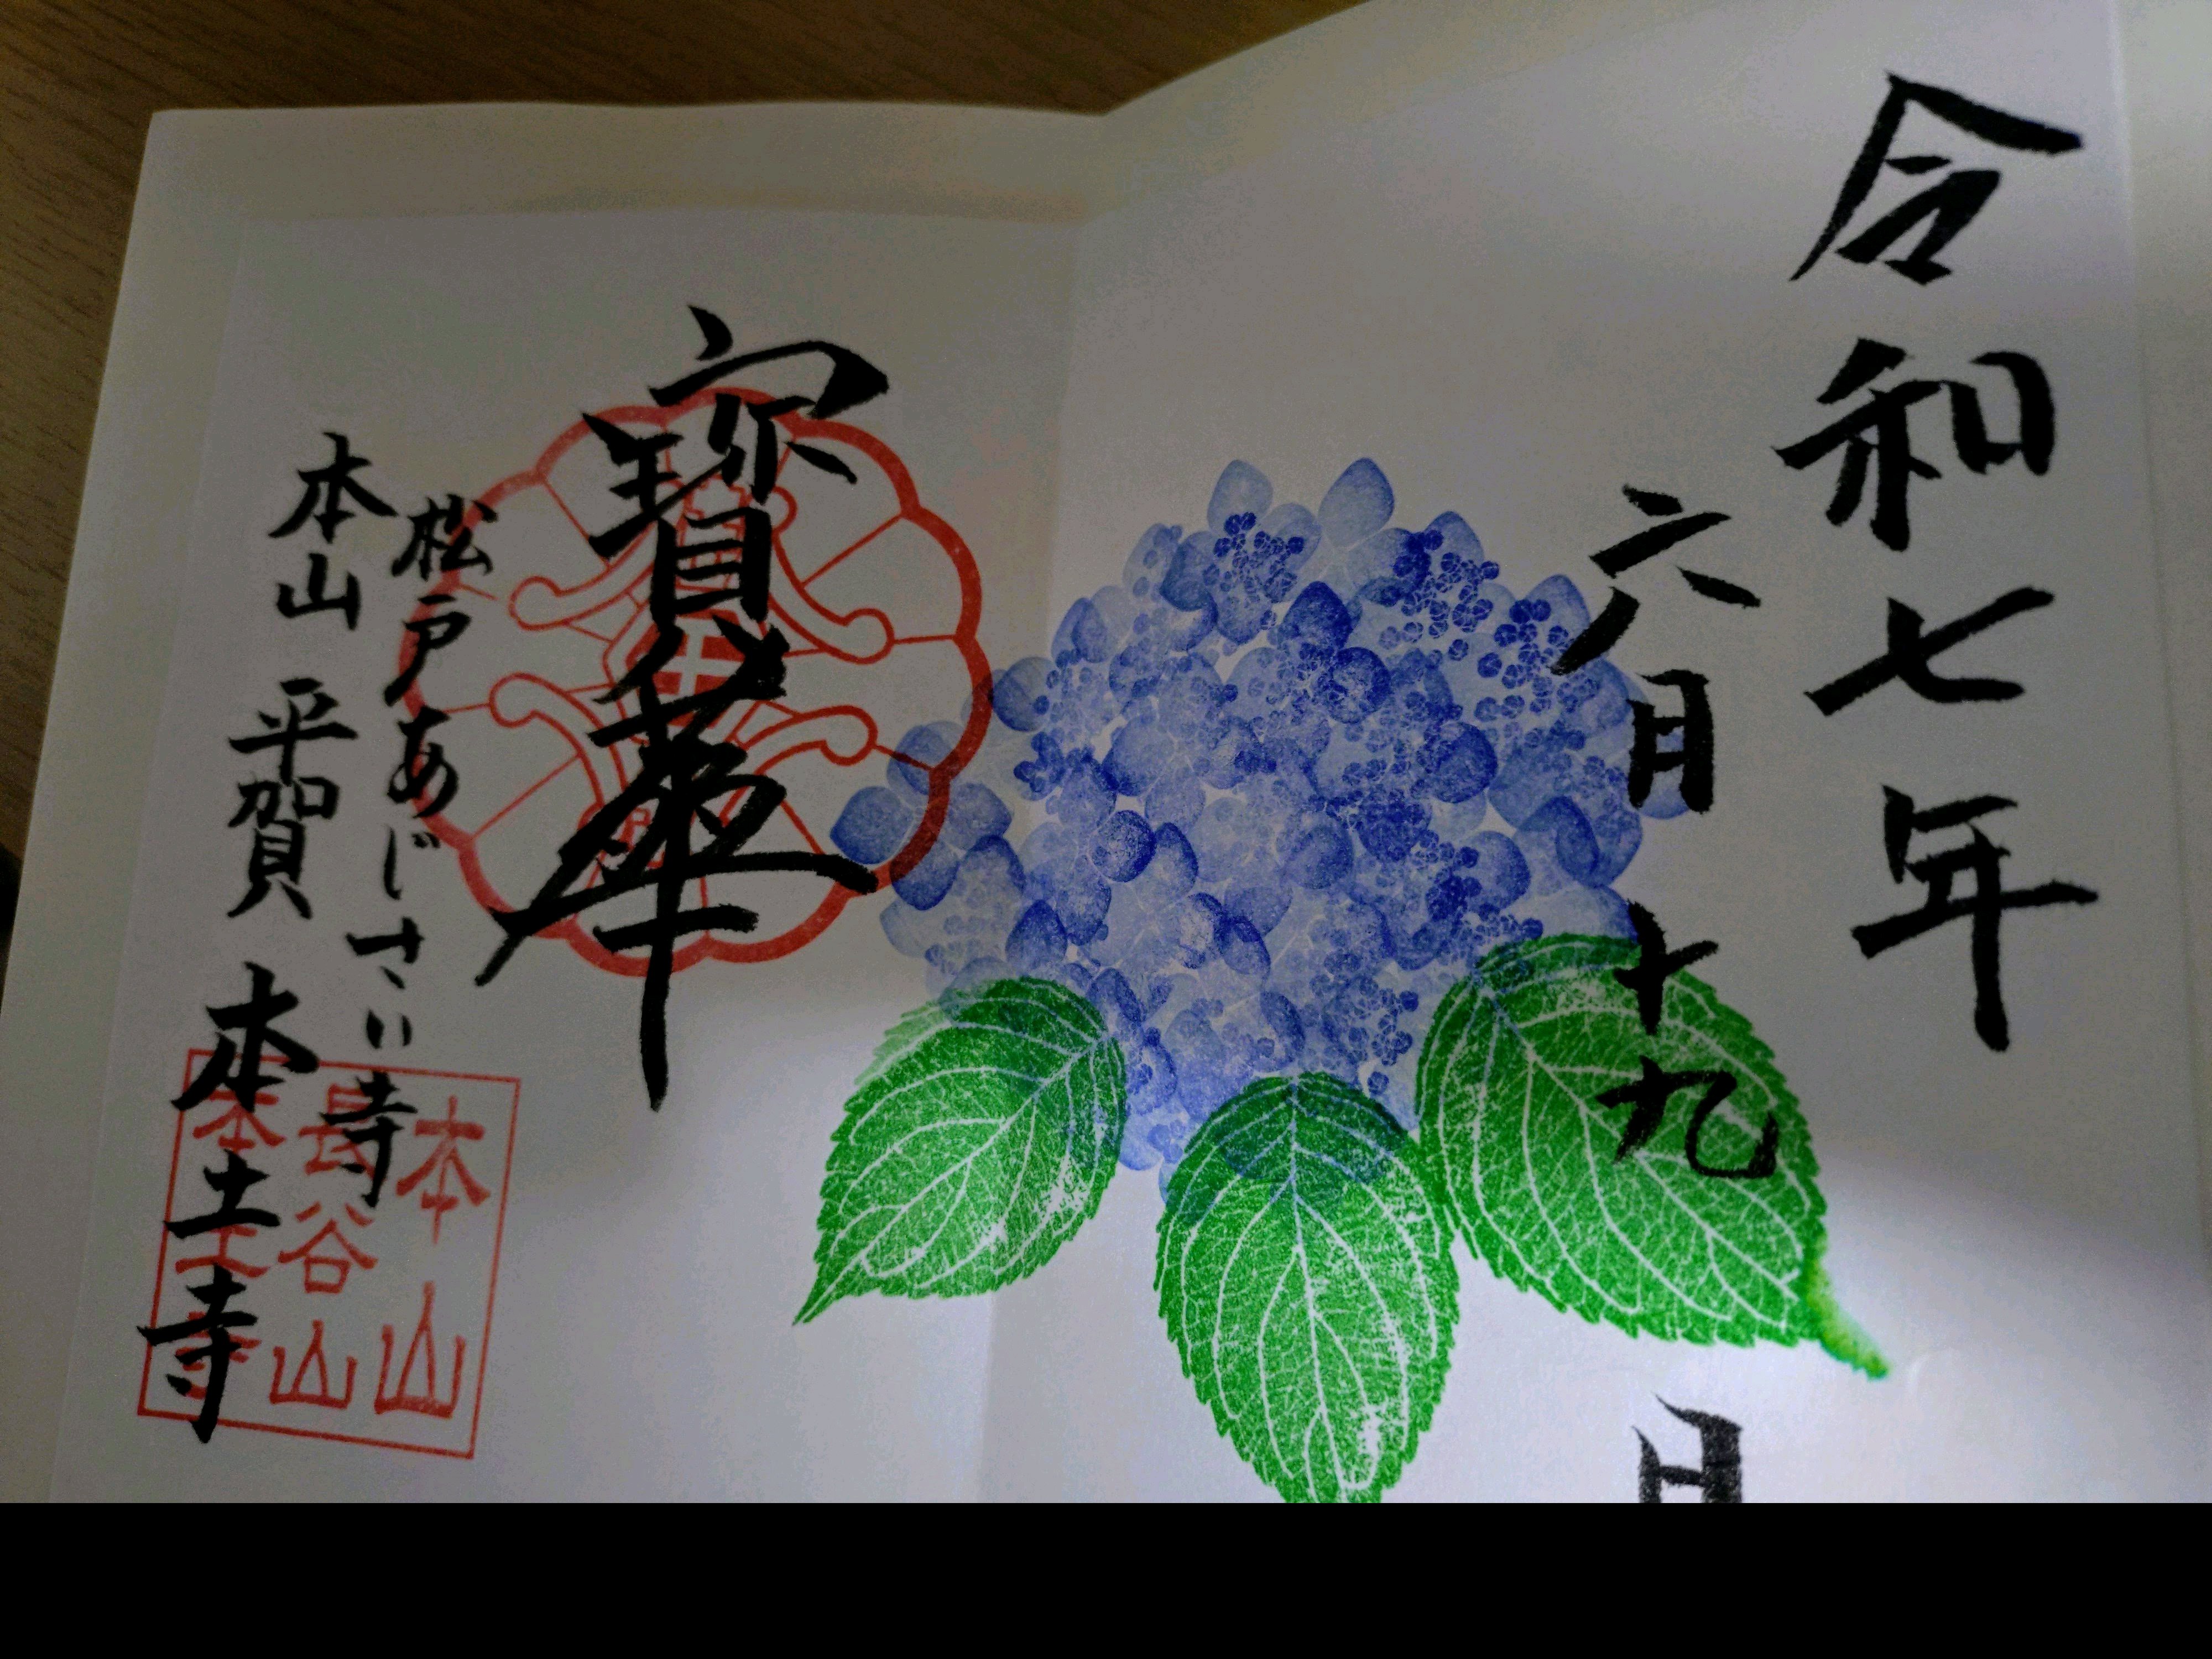 令和七年
六月十九日
寳華
松戸あじさい寺
本山 平賀 本土寺
本山
長谷山
本土寺